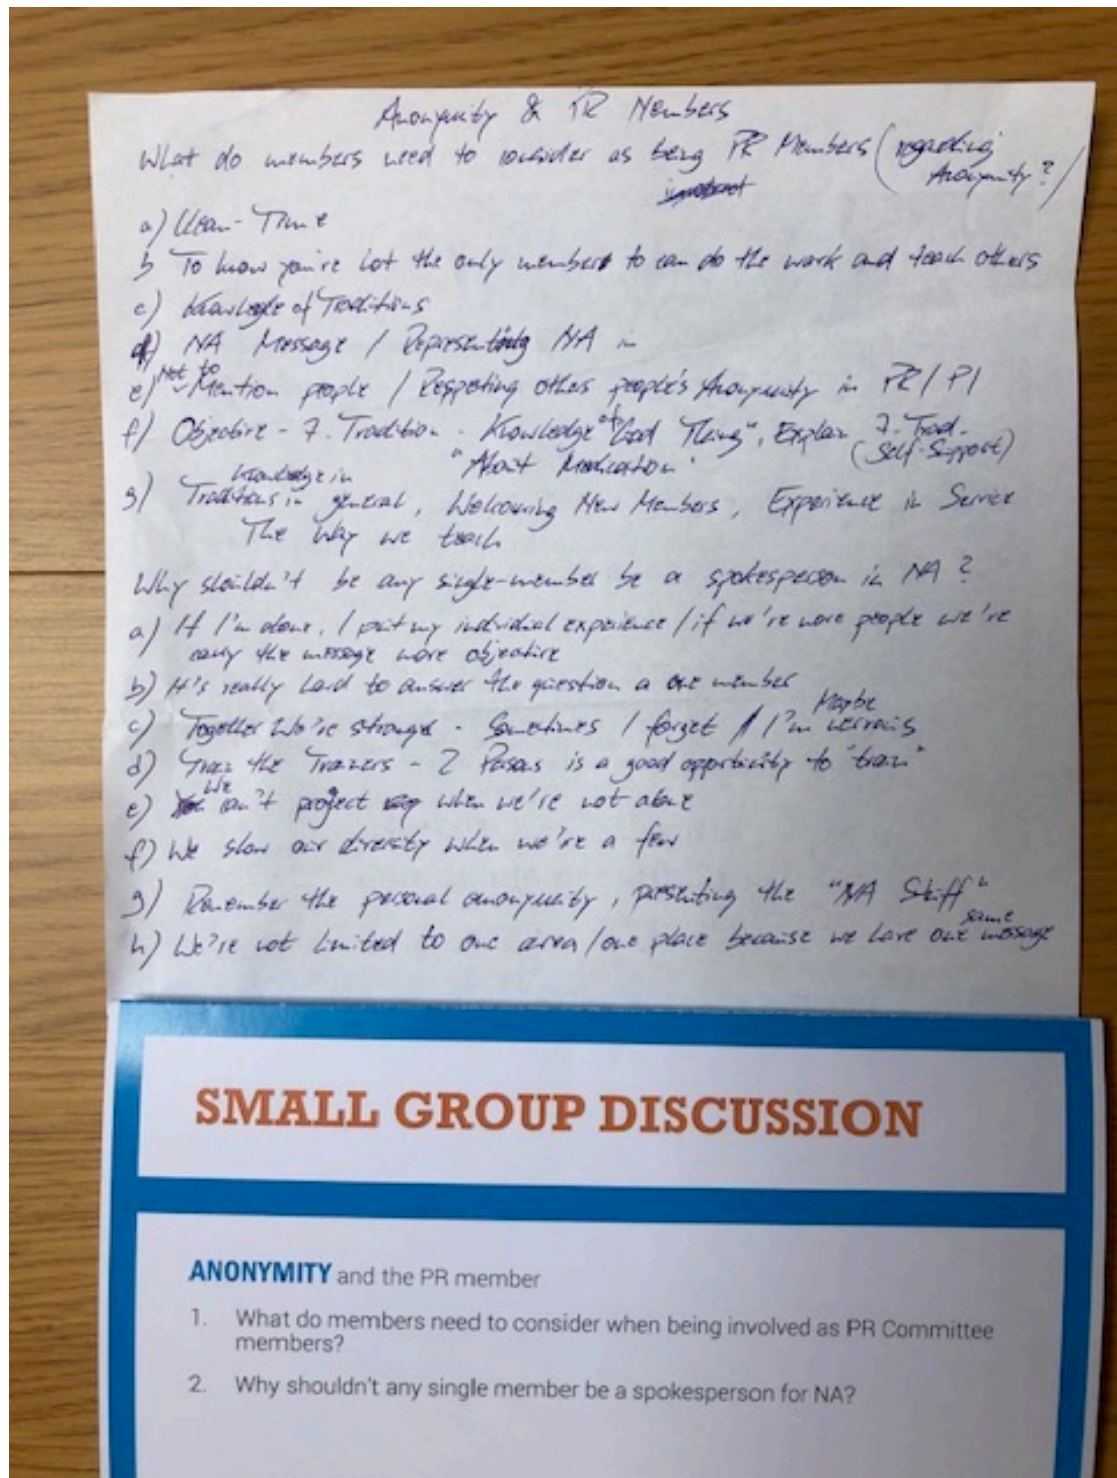 Anonymity & PR Members
What do members need to consider as being PR Members (regarding
Anonymity?)
a) Clean-Time
b To know you're not the only member to can do the work and teach others
c) Knowledge of Traditions
d) NA Message / Representing NA in
e) Not to Mention people / Respecting other people's Anonymity in PR / PI
f) Objective - 7. Tradition - Knowledge of "God Thing", Explain 7. Trad.
"About Medication" (Self-Support)
knowledge in
g) Traditions in general, Welcoming New Members, Experience in Service
The way we teach
Why shouldn't be any single-member be a spokesperson in NA?
a) If I'm alone, I put my individual experience / if we're more people we're
carry the message more objective
b) It's really hard to answer the question a one member
Maybe
c) Together We're stronger - Sometimes I forget / I'm nervous
d) Train the Trainers - 2 Persons is a good opportunity to "train"
e) We can't project when we're not alone
f) We show our diversity when we're a few
g) Remember the personal anonymity, presenting the "NA Stuff"
same
h) We're not limited to one area / one place because we have one message
SMALL GROUP DISCUSSION
ANONYMITY and the PR member
1. What do members need to consider when being involved as PR Committee
members?
2. Why shouldn't any single member be a spokesperson for NA?